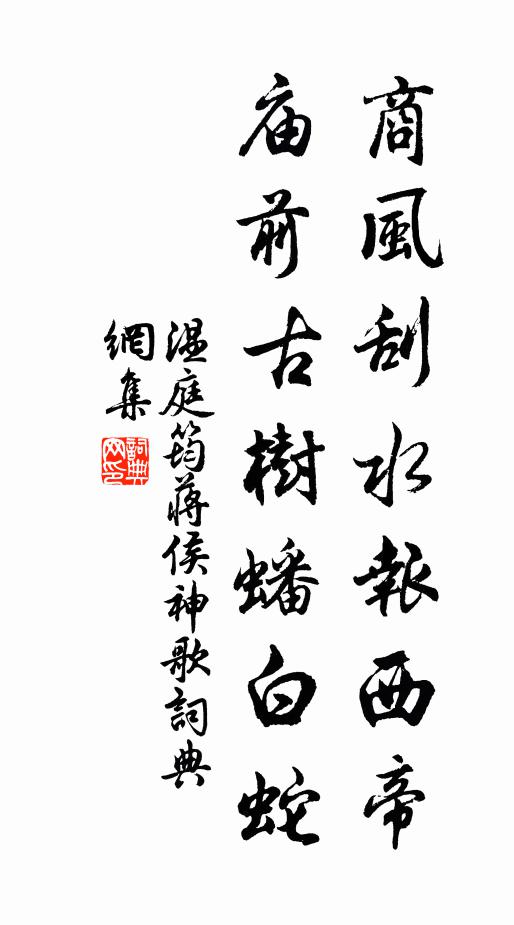 商風刮水報西帝
庙前古樹蟠白蛇
温庭筠蔣侯神歌詞典
網集
詞典
网印